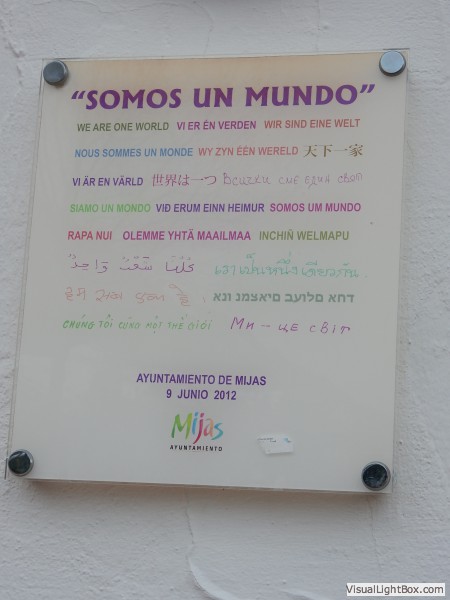 “SOMOS UN MUNDO”
WE ARE ONE WORLD VI ER ÉN VERDEN WIR SIND EINE WELT
NOUS SOMMES UN MONDE WY ZYN ÉÉN WERELD 天下一家
VI ÄR EN VÄRLD 世界は一つ Всички сме един свят
SIAMO UN MONDO VIÐ ERUM EINN HEIMUR SOMOS UM MUNDO
RAPA NUI OLEMME YHTÄ MAAILMAA INCHIÑ WELMAPU
كلنا شعب واحد เราเป็นหนึ่งเดียวกัน
हम सब एक है אנו נמצאים בעולם אחד
CHÚNG TÔI CÙNG MỘT THẾ GIỚI Ми - це світ
AYUNTAMIENTO DE MIJAS
9 JUNIO 2012
Mijas
AYUNTAMIENTO
VisualLightBox.com